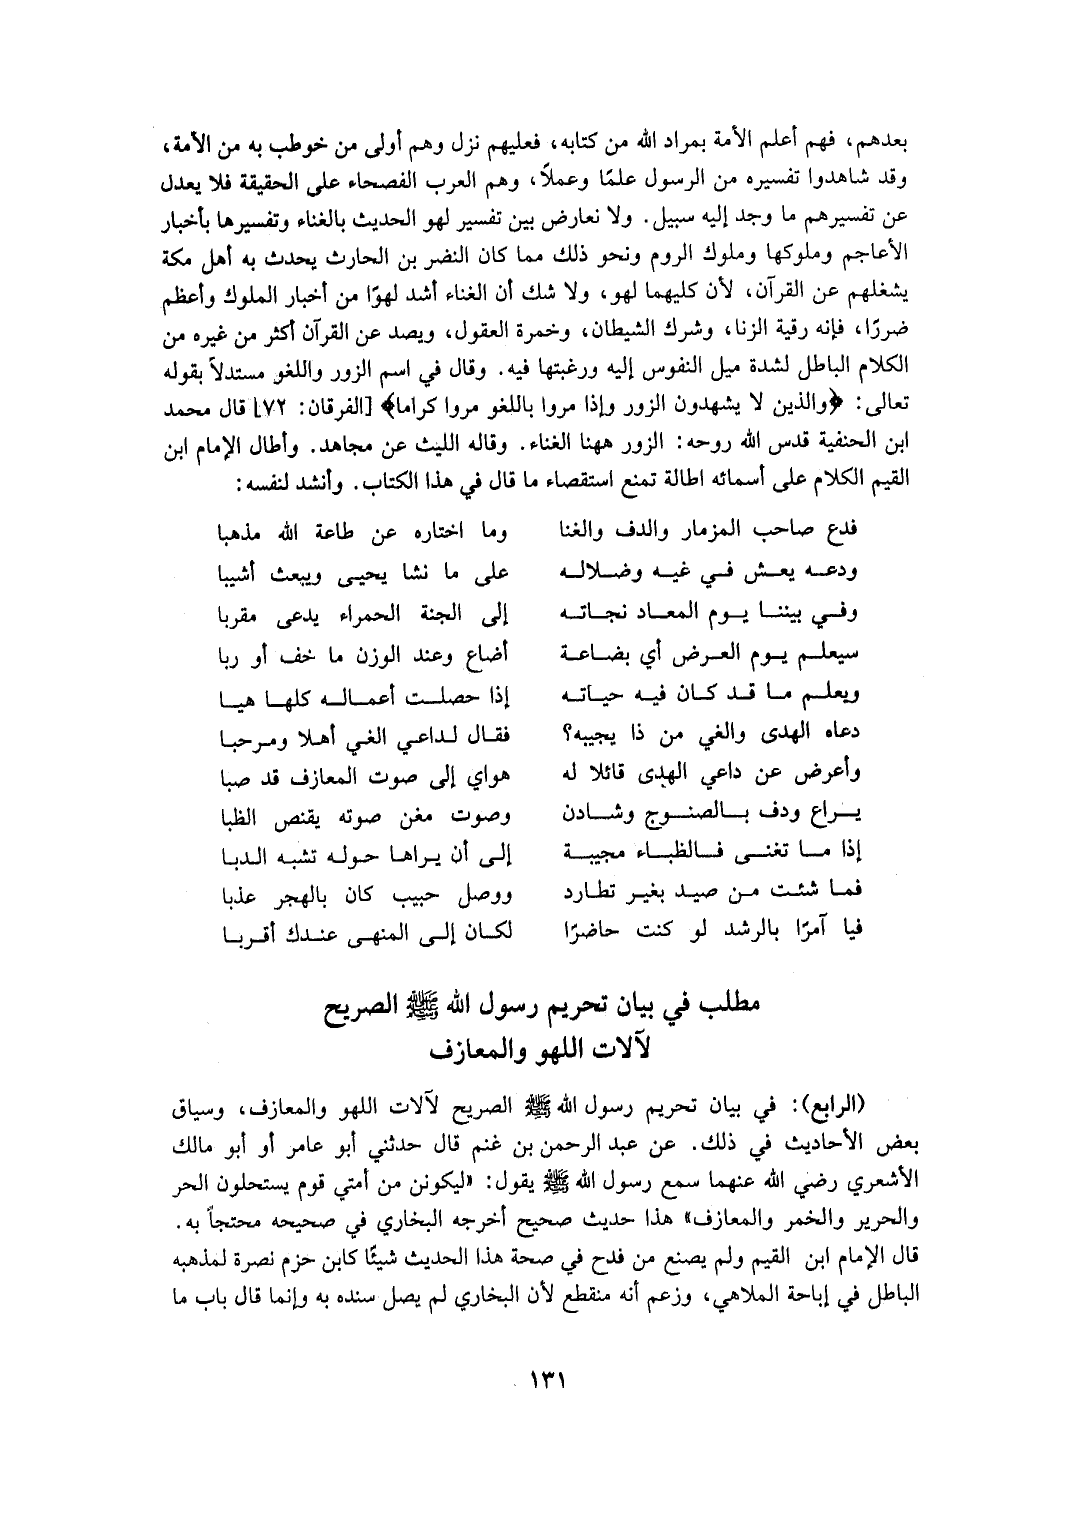 بعدهم، فهم أعلم الأمة بمراد الله من كتابه، فعليهم نزل وهم أولى من خوطب به من الأمة،
وقد شاهدوا تفسيره من الرسول علمًا وعملاً، وهم العرب الفصحاء على الحقيقة فلا يعدل
عن تفسيرهم ما وجد إليه سبيل. ولا نعارض بين تفسير لهو الحديث بالغناء وتفسيرها بأخبار
الأعاجم وملوكها وملوك الروم ونحو ذلك مما كان النضر بن الحارث يحدث به أهل مكة
يشغلهم عن القرآن، لأن كليهما لهو، ولا شك أن الغناء أشد لهوًا من أخبار الملوك وأعظم
ضررًا، فإنه رقية الزنا، وشرك الشيطان، وخمرة العقول، ويصد عن القرآن أكثر من غيره من
الكلام الباطل لشدة ميل النفوس إليه ورغبتها فيه. وقال في اسم الزور واللغو مستدلاً بقوله
تعالى: ﴿والذين لا يشهدون الزور وإذا مروا باللغو مروا كراما﴾ [الفرقان: ٧٢] قال محمد
ابن الحنفية قدس الله روحه: الزور ههنا الغناء. وقاله الليث عن مجاهد. وأطال الإمام ابن
القيم الكلام على أسمائه اطالة تمنع استقصاء ما قال في هذا الكتاب. وأنشد لنفسه:
فدع صاحب المزمار والدف والغنا وما اختاره عن طاعة الله مذهبا
ودعه يعش في غيه وضلاله على ما نشا يحيى ويبعث أشيبا
وفي بيننا يوم المعاد نجاته إلى الجنة الحمراء يدعى مقربا
سيعلم يوم العرض أي بضاعة أضاع وعند الوزن ما خف أو ربا
ويعلم ما قد كان فيه حياته إذا حصلت أعماله كلها هبا
دعاه الهدى والغي من ذا يجيبه؟ فقال لداعي الغي أهلا ومرحبا
وأعرض عن داعي الهدى قائلا له هواي إلى صوت المعازف قد صبا
يراع ودف بالصنوج وشادن وصوت مغن صوته يقنص الظبا
إذا ما تغنى فالظباء مجيبة إلى أن يراها حوله تشبه الدبا
فما شئت من صيد بغير تطارد ووصل حبيب كان بالهجر عذبا
فيا آمرًا بالرشد لو كنت حاضرًا لكان إلى المنهى عندك أقربا
مطلب في بيان تحريم رسول الله ﷺ الصريح
لآلات اللهو والمعازف
(الرابع): في بيان تحريم رسول الله ﷺ الصريح لآلات اللهو والمعازف، وسياق
بعض الأحاديث في ذلك. عن عبد الرحمن بن غنم قال حدثني أبو عامر أو أبو مالك
الأشعري رضي الله عنهما سمع رسول الله ﷺ يقول: «ليكونن من أمتي قوم يستحلون الحر
والحرير والخمر والمعازف» هذا حديث صحيح أخرجه البخاري في صحيحه محتجاً به.
قال الإمام ابن القيم ولم يصنع من فدح في صحة هذا الحديث شيئًا كابن حزم نصرة لمذهبه
الباطل في إباحة الملاهي، وزعم أنه منقطع لأن البخاري لم يصل سنده به وإنما قال باب ما
١٣١